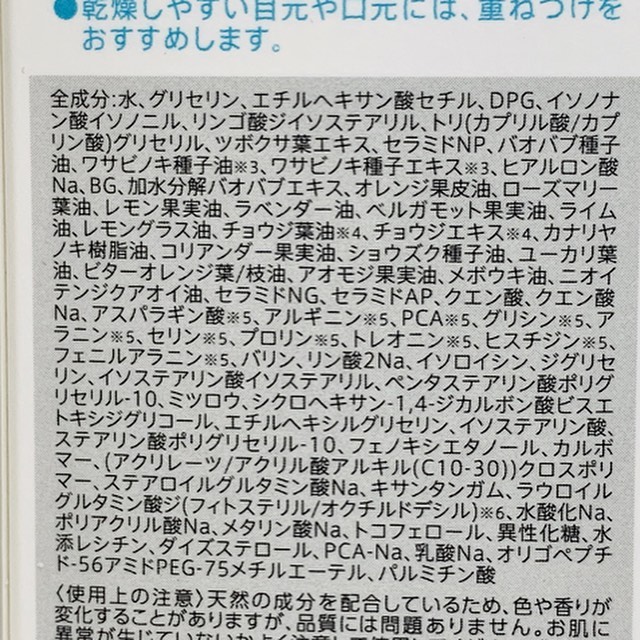 ●乾燥しやすい目元や口元には、重ねづけを
おすすめします。
全成分:水、グリセリン、エチルヘキサン酸セチル、DPG、イソノナ
ン酸イソノニル、リンゴ酸ジイソステアリル、トリ(カプリル酸/カプ
リン酸)グリセリル、ツボクサ葉エキス、セラミドNP、バオバブ種子
油、ワサビノキ種子油※3、ワサビノキ種子エキス※3、ヒアルロン酸
Na、BG、加水分解バオバブエキス、オレンジ果皮油、ローズマリー
葉油、レモン果実油、ラベンダー油、ベルガモット果実油、ライム
油、レモングラス油、チョウジ葉油※4、チョウジエキス※4、カナリヤ
ノキ樹脂油、コリアンダー果実油、ショウズク種子油、ユーカリ葉
油、ビターオレンジ葉/枝油、アオモジ果実油、メボウキ油、ニオイ
テンジクアオイ油、セラミドNG、セラミドAP、クエン酸、クエン酸
Na、アスパラギン酸※5、アルギニン※5、PCA※5、グリシン※5、ア
ラニン※5、セリン※5、プロリン※5、トレオニン※5、ヒスチジン※5、
フェニルアラニン※5、バリン、リン酸2Na、イソロイシン、ジグリセ
リン、イソステアリン酸イソステアリル、ペンタステアリン酸ポリグ
リセリル-10、ミツロウ、シクロヘキサン-1,4-ジカルボン酸ビスエ
トキシジグリコール、エチルヘキシルグリセリン、イソステアリン酸、
ステアリン酸ポリグリセリル-10、フェノキシエタノール、カルボ
マー、(アクリレーツ/アクリル酸アルキル(C10-30))クロスポリ
マー、ステアロイルグルタミン酸Na、キサンタンガム、ラウロイル
グルタミン酸ジ(フィトステリル/オクチルドデシル)※6、水酸化Na、
ポリアクリル酸Na、メタリン酸Na、トコフェロール、異性化糖、水
添レシチン、ダイズステロール、PCA-Na、乳酸Na、オリゴペプチ
ド-56アミドPEG-75メチルエーテル、パルミチン酸
〈使用上の注意〉天然の成分を配合しているため、色や香りが
変化することがありますが、品質には問題ありません。お肌に
異常が生じていないかよく注意して使用して